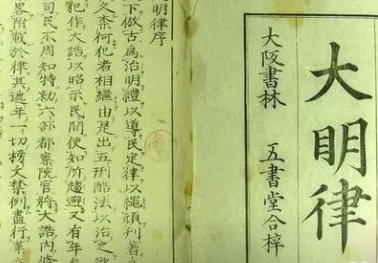 大明律
大阪書林　五書堂合梓
明律序
下倣古爲治明禮以導民定律以繩頑刊著
久奈何犯者相繼由是出五刑酷法以治之欲
犯作大誥以昭示民間使知所趨避又有年
司民不周知特勅六部都察院官將大誥内條
畧附載於律其遞年一切榜文禁例盡行革